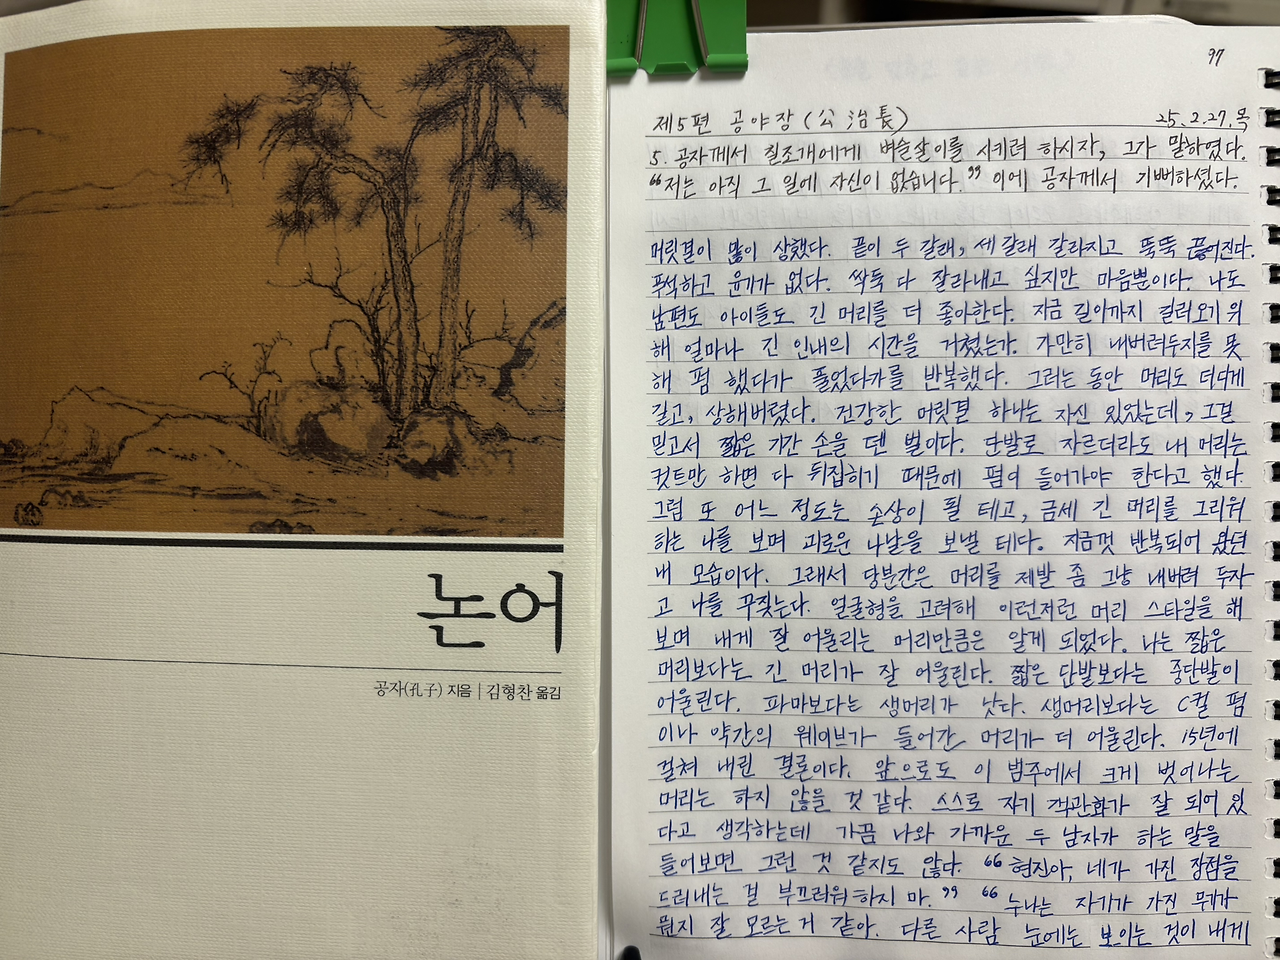 논어
공자(孔子) 지음 | 김형찬 옮김
97
제5편 공야장(公治長) 25.2.27.목
5. 공자께서 칠조개에게 벼슬살이를 시키려 하시자, 그가 말하였다.
“저는 아직 그 일에 자신이 없습니다.” 이에 공자께서 기뻐하셨다.
머릿결이 많이 상했다. 끝이 두 갈래, 세 갈래 갈라지고 뚝뚝 끊어진다.
푸석하고 윤기가 없다. 싹둑 다 잘라내고 싶지만 마음뿐이다. 나도
남편도 아이들도 긴 머리를 더 좋아한다. 지금 길이까지 길러오기 위
해 얼마나 긴 인내의 시간을 거쳤는가. 가만히 내버려두지를 못
해 펌 했다가 풀었다가를 반복했다. 그러는 동안 머리도 더디게
길고, 상해버렸다. 건강한 머릿결 하나는 자신 있었는데, 그걸
믿고서 짧은 기간 손을 덴 벌이다. 단발로 자르더라도 내 머리는
컷트만 하면 다 뒤집히기 때문에 펌이 들어가야 한다고 했다.
그럼 또 어느 정도는 손상이 될 테고, 금세 긴 머리를 그리워
하는 나를 보며 괴로운 나날을 보낼 테다. 지금껏 반복되어 왔던
내 모습이다. 그래서 당분간은 머리를 제발 좀 그냥 내버려 두자
고 나를 꾸짖는다. 얼굴형을 고려해 이런저런 머리 스타일을 해
보며 내게 잘 어울리는 머리만큼은 알게 되었다. 나는 짧은
머리보다는 긴 머리가 잘 어울린다. 짧은 단발보다는 중단발이
어울린다. 파마보다는 생머리가 낫다. 생머리보다는 C컬 펌
이나 약간의 웨이브가 들어간 머리가 더 어울린다. 15년에
걸쳐 내린 결론이다. 앞으로도 이 범주에서 크게 벗어나는
머리는 하지 않을 것 같다. 스스로 자기 객관화가 잘 되어 있
다고 생각하는데 가끔 나와 가까운 두 남자가 하는 말을
들어보면 그런 것 같지도 않다. “현진아, 네가 가진 장점을
드러내는 걸 부끄러워 하지 마.” “누나는 자기가 가진 무기가
뭔지 잘 모르는 거 같아. 다른 사람 눈에는 보이는 것이 내게